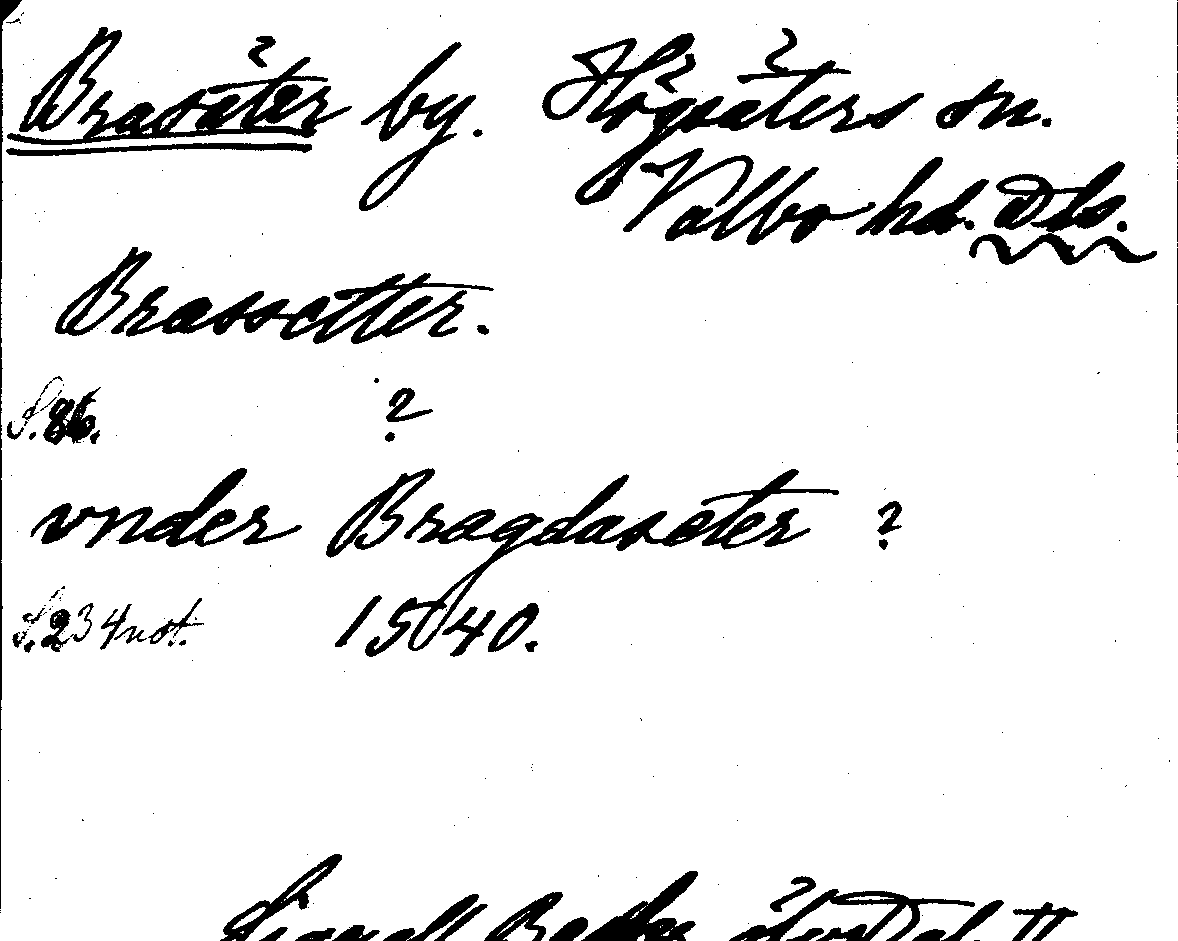 Brasäter by. Högsäters sn.
Valbo hd. Dls.
Brassetter.
S. 86. ?
vnder Bragdaseter ?
S. 234 not. 1540.
Lignell Beskr. öfver Dal II